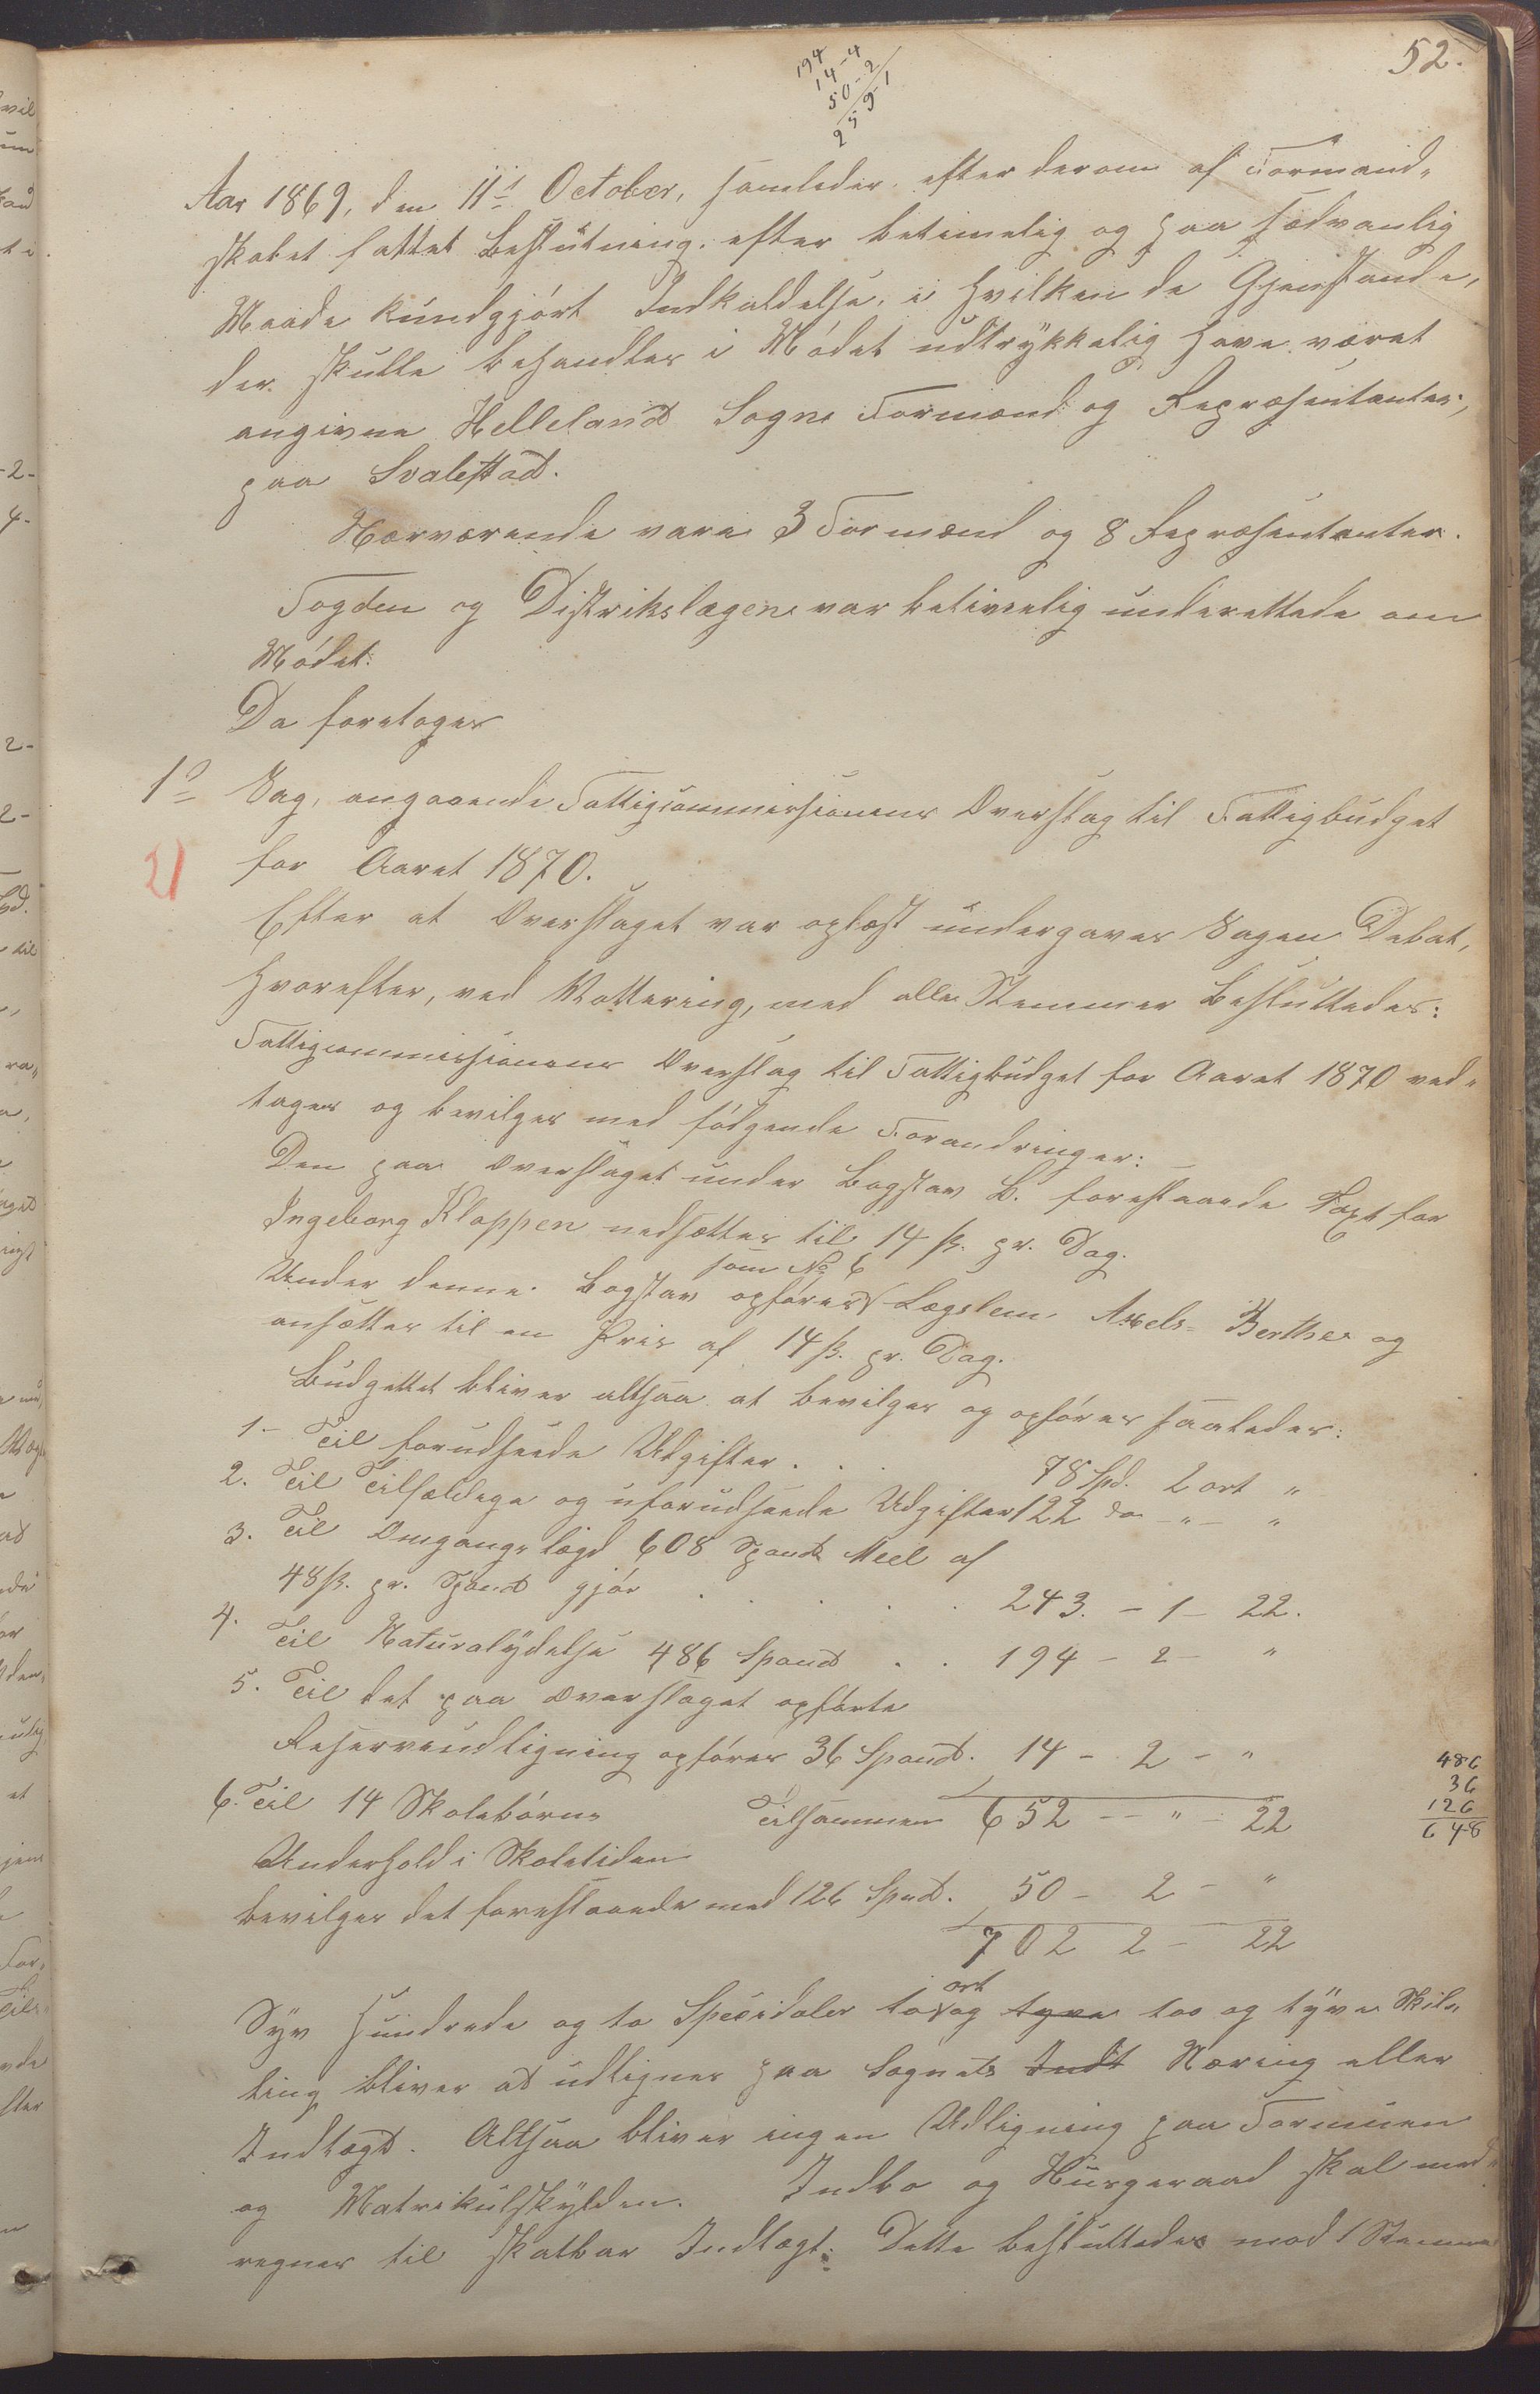 52.
194
14-4
50-2
259-1
Aar 1869, den 11te October, samledes efter derom af Formand-
skabet fattet Beslutning, efter betimelig og paa sædvanlig
Maade kundgjórt Indkaldelse, i hvilken de Gjenstande,
der skulle behandles i Módet udtrykkelig have været
angivne Helleland Sogns Formænd og Repræsentanter,
paa Svalestad.
Nærværende vare 3 Formænd og 8 Repræsentanter.
Fogden og Distrikslægen var betimelig underettede om
Módet.
Da foretoges
1o Sag, angaaende Fattigcommissionens Overslag til Fattigbudget
for Aaret 1870.
21
Efter at Overslaget var oplæst undergaves Sagen Debat,
hvorefter, ved Vottering, med alle Stemmer besluttedes:
Fattigcommissionens Overslag til Fattigbudget for Aaret 1870 ved-
tages og bevilges med fólgende Forandringer:
Den paa Overslaget under Bogstav B. forestaaede Taxt for
Ingeborg Kloppen nedsættes til 14 ß. pr. Dag.
som No 6
Under denne Bogstav opfóres Lægslem Axels- Berthe og
ansættes til en Pris af 14 ß. pr. Dag.
Budgettet bliver altsaa at bevilges og opfóres saaledes:
1- Til forudseede Udgifter . . . 78 Spd. 2 ort "
2. Til Tilfældege og uforudseede Udgifter 122 do - " - "
3. Til Omgangslægd 608 Spand Meel af
48 ß. pr. Spand gjór . . . . . 243. - 1 - 22.
4. Til Naturalydelse 486 Spand . . 194 - 2 - "
5. Til det paa Overslaget opfórte
Reserveudligning opfóres 36 Spand. 14 - 2 - "
Tilsammen 652 - " - 22
6. Til 14 Skolebórns
Underhold i Skoletiden
bevilges det forestaaede med 126 Spnd. 50 - 2 - "
702 2 - 22
486
36
126
648
Syv Hundrede og to Speciedaler to ort og tyve too og tyve Skil-
ling bliver at udlignes paa Sognets Indt Næring eller
Indtægt. Altsaa bliver ingen Udligning paa Formuen
og Matrikulskylden. Indbo og Husgeraad skal med-
regnes til skatbar Indtægt. Dette besluttedes mod 1 Stemme